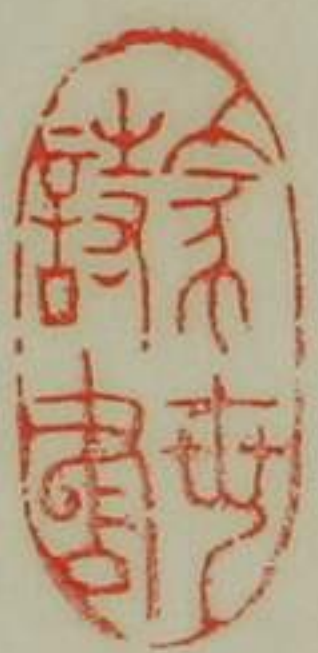 家世
詩書